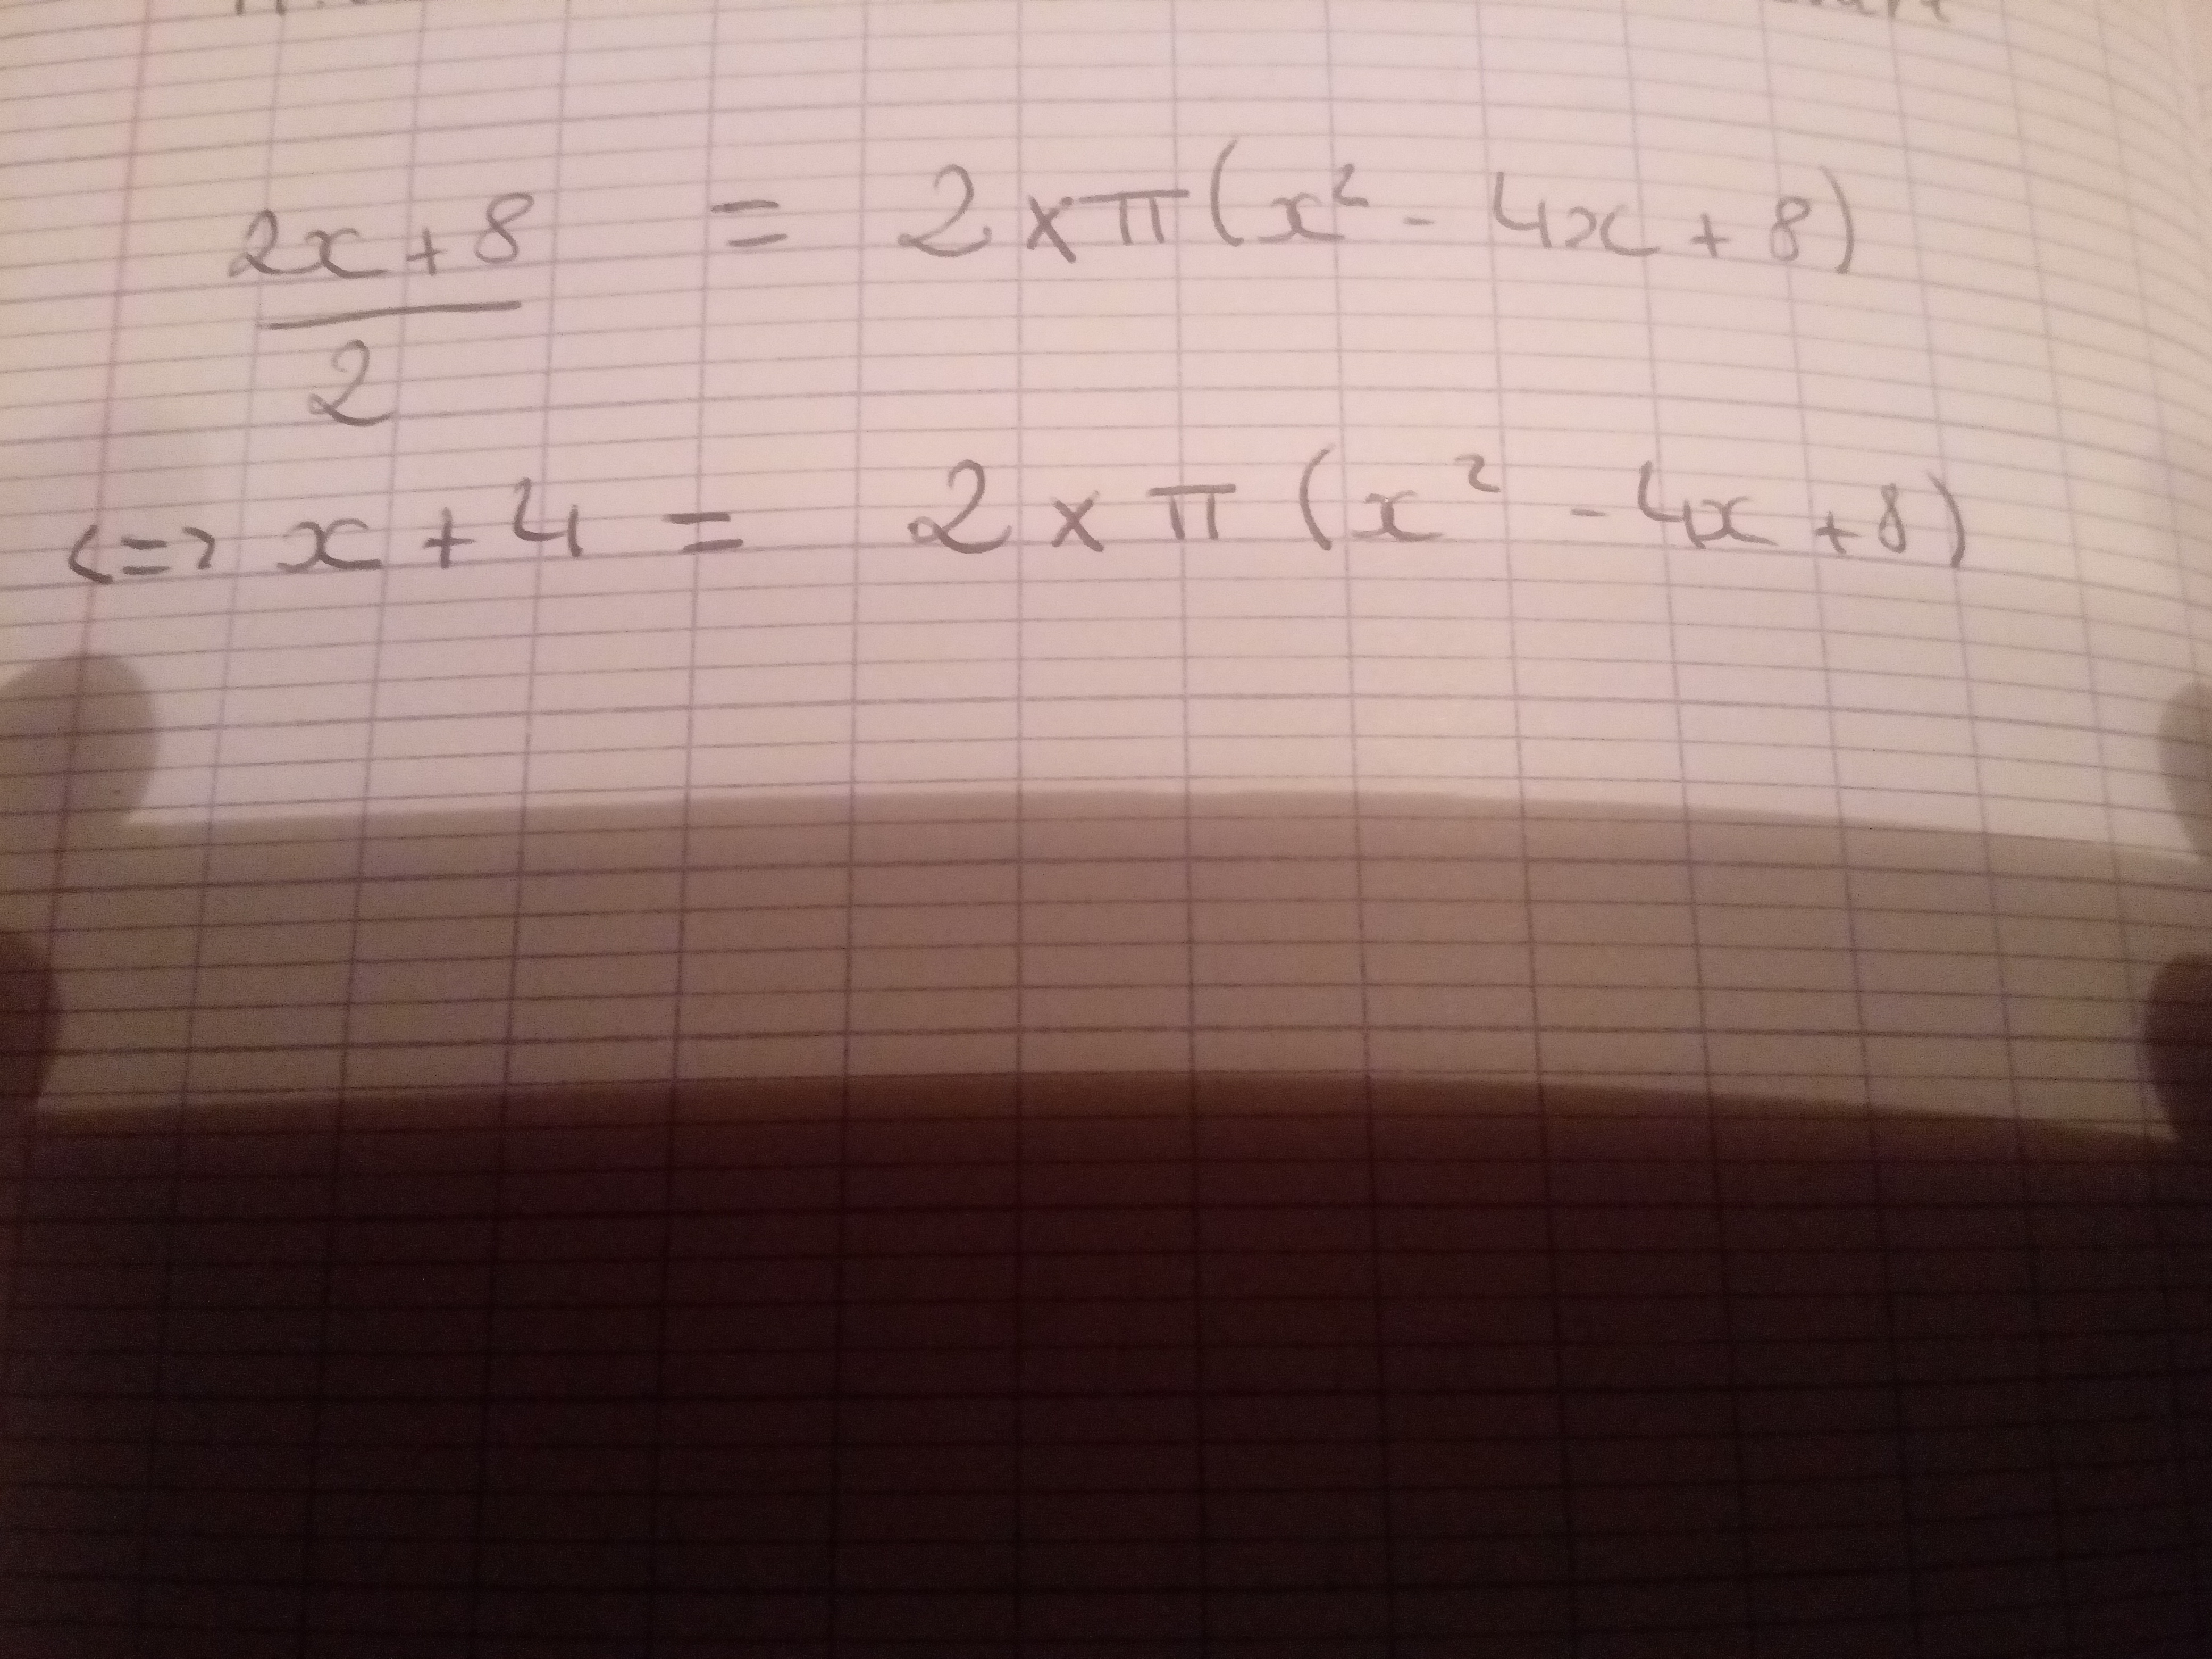 2x + 8 = 2 × π (x² - 4x + 8)
2
<=> x + 4 = 2 × π (x² - 4x + 8)